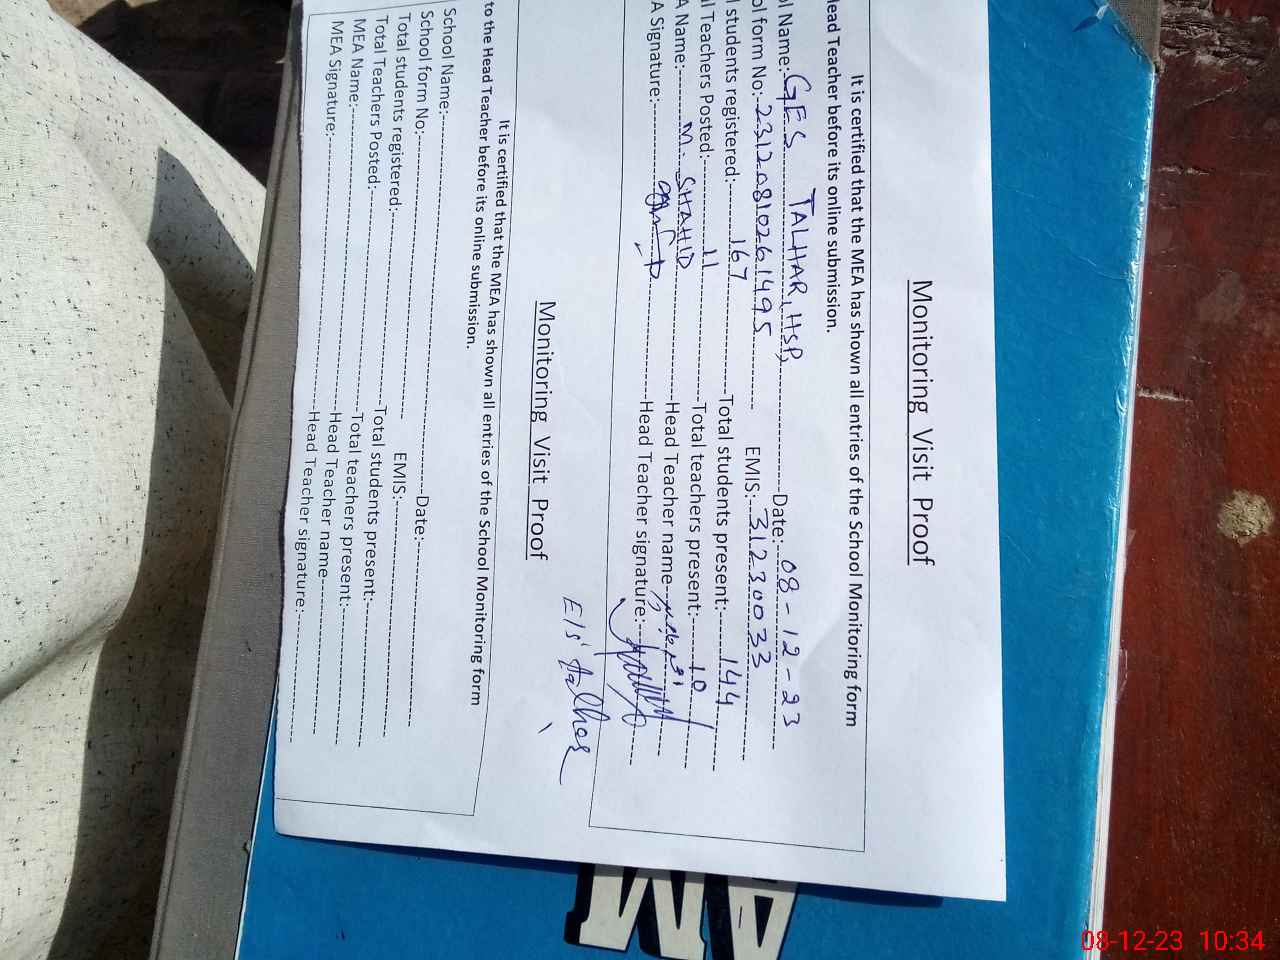 Monitoring Visit Proof
It is certified that the MEA has shown all entries of the School Monitoring form
Head Teacher before its online submission.
ol Name:- GES TALHAR, HSP, Date:- 08-12-23
ol form No:- 23120810261495 EMIS:- 31230033
l students registered:- 167 Total students present:- 144
l Teachers Posted:- 11 Total teachers present:- 10
A Name:- M. SHAHID Head Teacher name
A Signature:- Head Teacher signature:-
E/S Talhar
Monitoring Visit Proof
It is certified that the MEA has shown all entries of the School Monitoring form
to the Head Teacher before its online submission.
School Name:- Date:-
School form No:- EMIS:-
Total students registered:- Total students present:-
Total Teachers Posted:- Total teachers present:-
MEA Name:- Head Teacher name
MEA Signature:- Head Teacher signature:-
AM
08-12-23 10:34